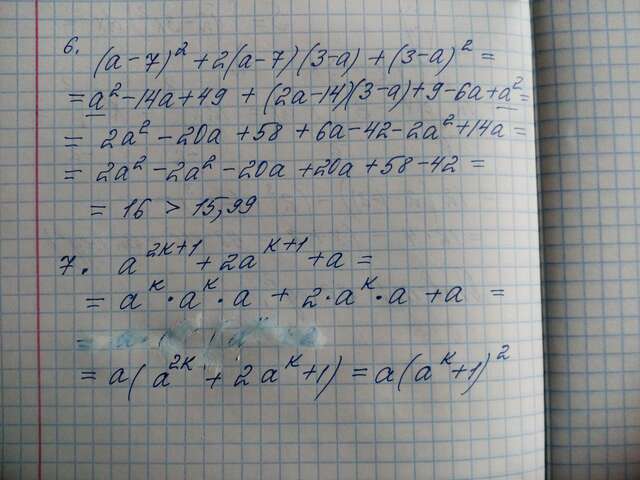 6. (a-7)² + 2(a-7)(3-a) + (3-a)² =
= a² - 14a + 49 + (2a-14)(3-a) + 9 - 6a + a² =
= 2a² - 20a + 58 + 6a - 42 - 2a² + 14a =
= 2a² - 2a² - 20a + 20a + 58 - 42 =
= 16 > 15,99
7. a^{2k+1} + 2a^{k+1} + a =
= a^k · a^k · a + 2 · a^k · a + a =
= a(a^{2k} + 2a^k + 1) = a(a^k + 1)²